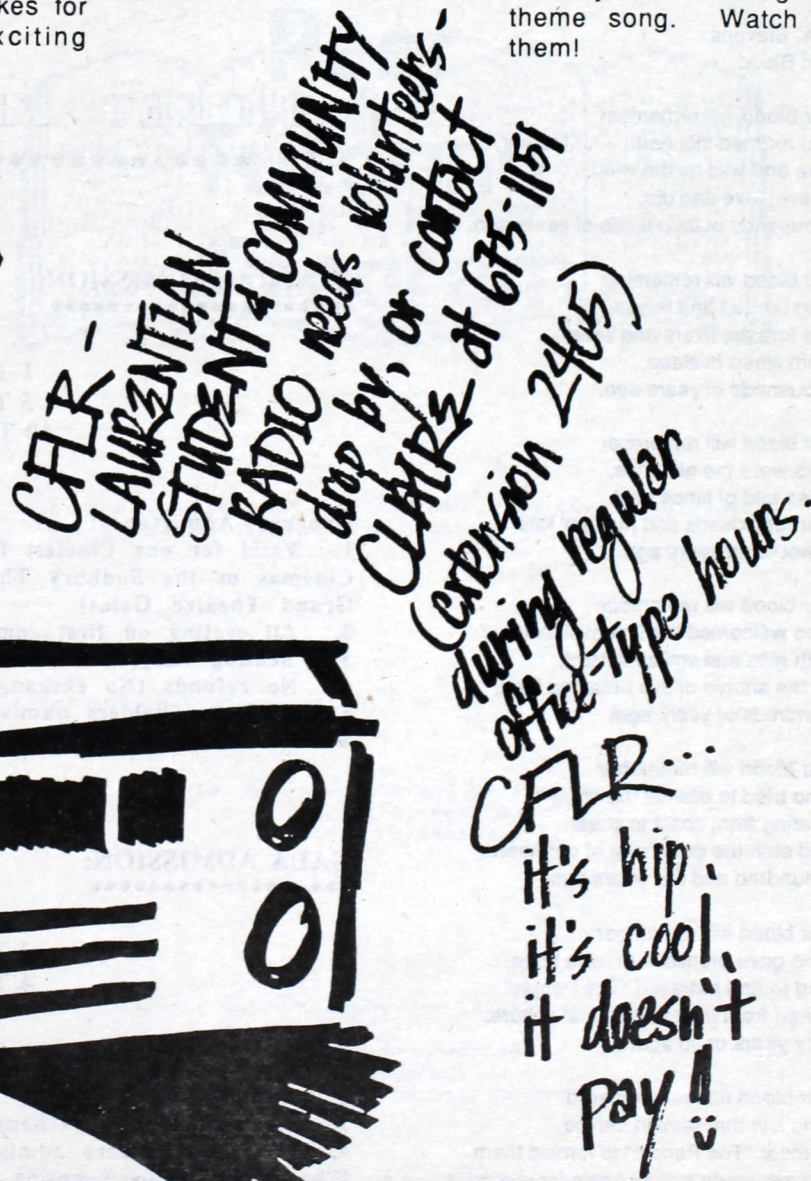 kes for
xciting
theme song. Watch
them!
CFLR -
LAURENTIAN
STUDENT & COMMUNITY
RADIO needs volunteers -
drop by, or contact
CLAIRE at 675-1151
(extension 2405)
during regular
office-type hours.
CFLR...
it's hip,
it's cool,
it doesn't
pay!